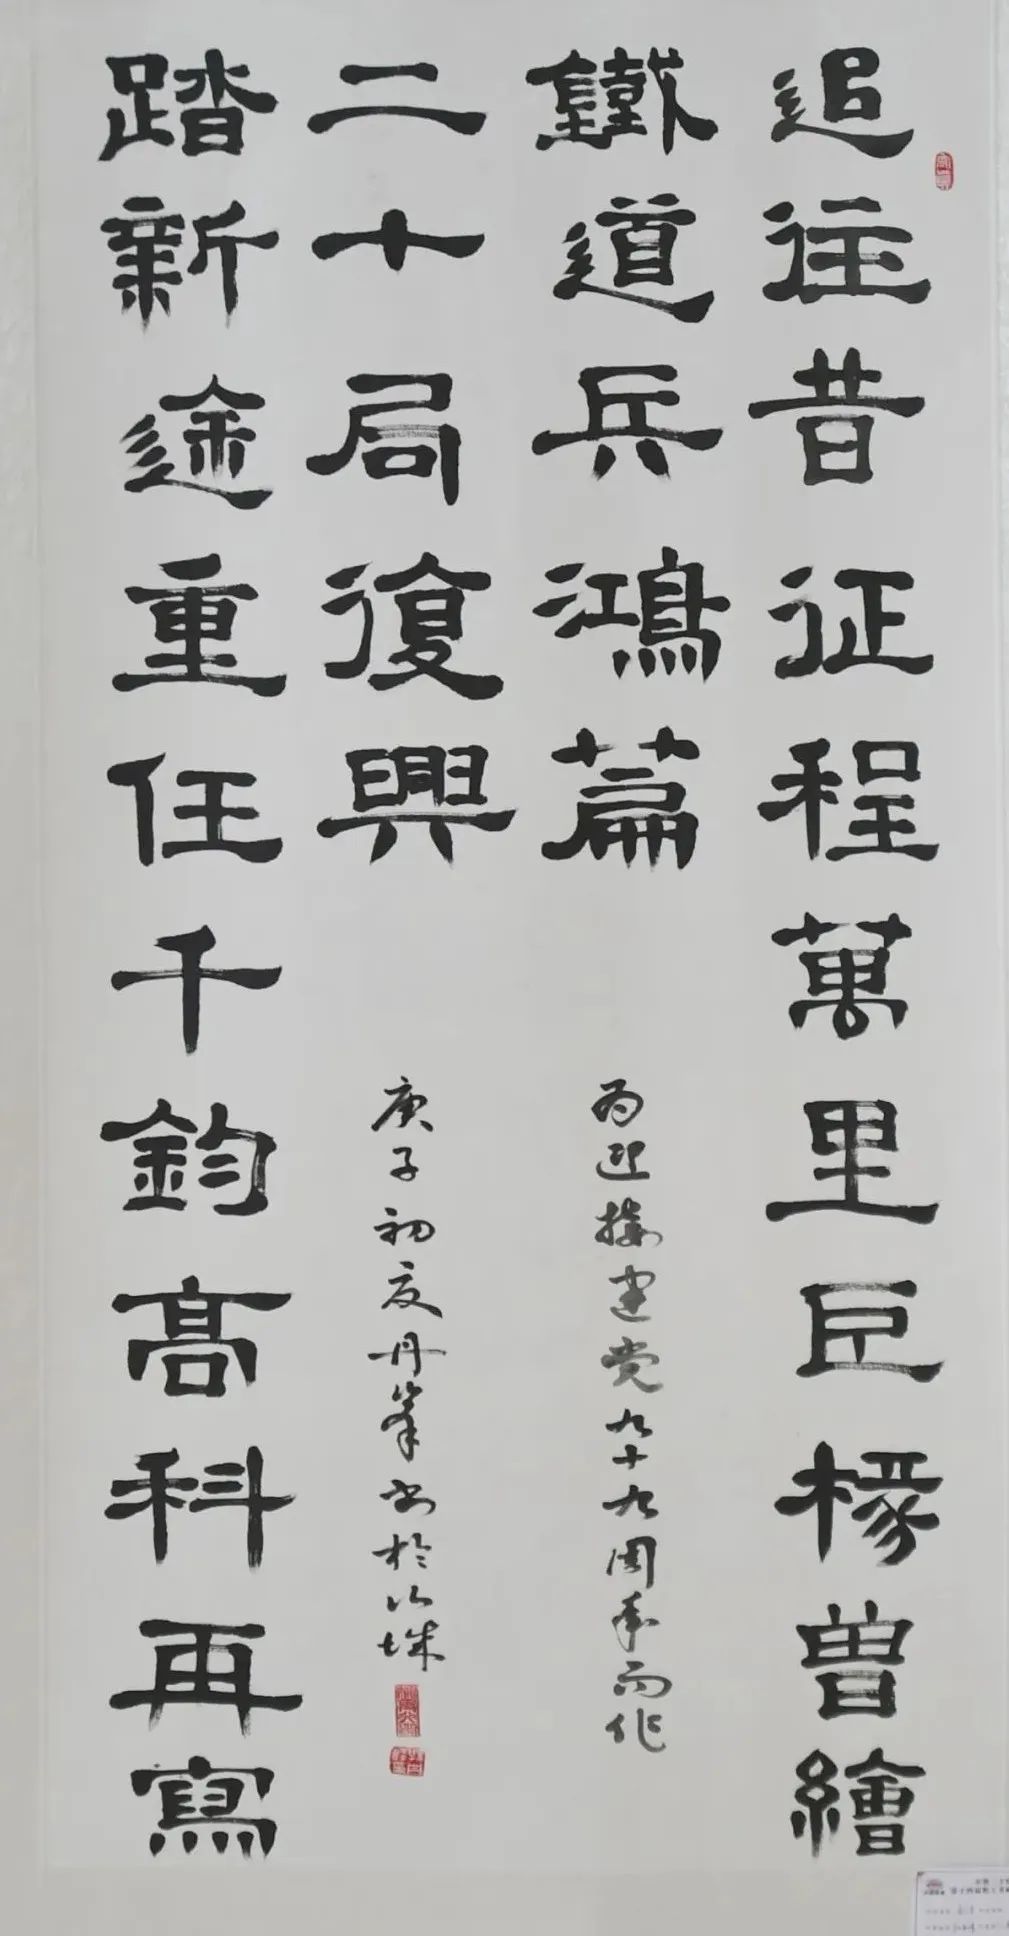 追往昔征程萬里巨椽曾繪
鐵道兵鴻篇
为迎接建党九十九周年而作
踏新途重任千鈞高科再寫
二十局復興
庚子初夏丹峯书於